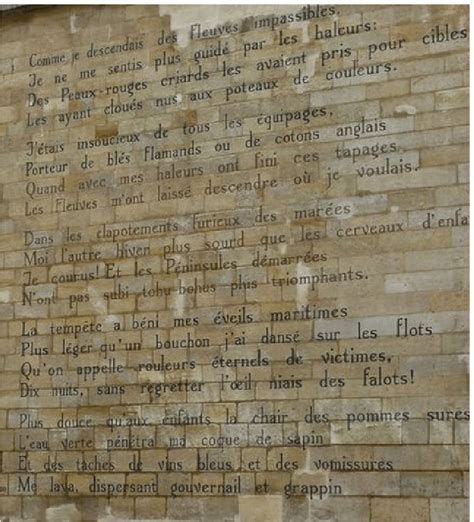 Comme je descendais des Fleuves impassibles,
Je ne me sentis plus guidé par les haleurs:
Des Peaux-rouges criards les avaient pris pour cibles
Les ayant cloués nus aux poteaux de couleurs.
J'étais insoucieux de tous les équipages,
Porteur de blés flamands ou de cotons anglais
Quand avec mes haleurs ont fini ces tapages
Les Fleuves m'ont laissé descendre où je voulais.
Dans les clapotements furieux des marées
Moi l'autre hiver plus sourd que les cerveaux d'enfa
Je courus! Et les Péninsules démarrées
N'ont pas subi tohu-bohus plus triomphants.
La tempête a béni mes éveils maritimes
Plus léger qu'un bouchon j'ai dansé sur les flots
Qu'on appelle rouleurs éternels de victimes,
Dix nuits, sans regretter l'œil niais des falots!
Plus douce qu'aux enfants la chair des pommes sures
L'eau verte pénétra ma coque de sapin
Et des taches de vins bleus et des vomissures
Me lava, dispersant gouvernail et grappin